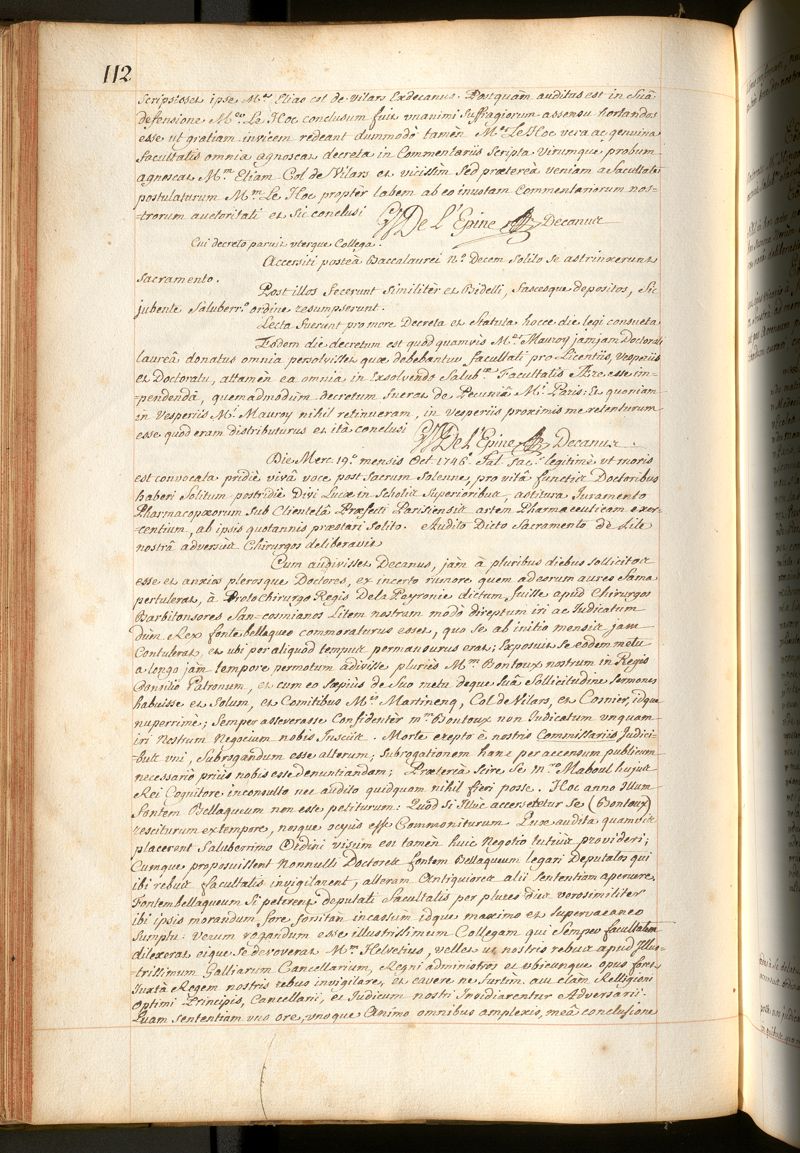 112
scriptores ipse M.r Elias col de Vilars Exdecanus. Postquam auditus est in Suâ
defensione M.er Le Hoc conclusum fuit unanimi Suffragiorum assensu hortandos
esse ut gratiam invicem redeant dummodò tamen M.r Le Hoc vera ac genuina
facultatis omnia agnoscat decreta in Commentariis Scripta Virumque probum
agnoscat M.m Eliam Col de Vilars et vicissim Sed prætereà veniam a facultate
postulaturum M.m Le Hoc propter labem ab eo inustam Commentariorum nos-
trorum auctoritati et Sic conclusi De L'Epine Decanus
Cui decreto paruit uterque Collega.
Accersiti posteà Baccalaurei n.o Decem Solito Se astrinxerunt
Sacramento.
Post illos fecerunt Similitèr et Bidelli, fascesque depositos, Sic
jubente Saluberr.o ordine resumpserunt.
Lecta fuerunt pro more Decreta et Statuta hocce die legi consueta
Eodem die decretum est quod quamvis M.er Mauroy jamjam Doctorali
laureâ donatus omnia persolvisset quæ debebantur facultati pro Licentiis, Vesperiis
et Doctoratu, attamèn ea omnia in Exsolvendo Salub.ae Facultatis Ære esse im-
pendenda, quemadmodùm decretum fuerat de Pecuniâ M.i Paris: Et quoniam
in Vesperiis M.i Mauroy nihil retinueram, in vesperiis proximis me retenturum
esse quod eram distributurus et ità conclusi De L'Epine Decanus.
Die Merc. 19.o mensis Oct. 1746. Sal. Fac. legitimè ut moris
est convocata pridiè vivâ voce post Sacrum Solemne, pro vitâ functis Doctoribus
haberi Solitum postridiè Divi Lucæ in Scholis Superioribus, astitura Juramento
Pharmacopæorum Sub Clientelâ Præfecti Parisiensis artem Pharmaceuticam exer-
centium, ab ipsis quotannis præstari Solito. Audito Dicto Sacramento de Lite
nostrâ adversus Chirurgos deliberavit
Cum audivisset Decanus, jàm à pluribus diebus Sollicitos
esse et anxios plerosque Doctores, ex incerto rumore quem ad eorum aures fama
pertulerat, à ProtoChirurgo Regis De la Peyronie dictum, fuisse apud Chirurgos
Barbitonsores San-cosmianos Litem nostram modò direptum iri ac Judicatum
dùm Rex fontebellaqueo commoraturus esset, quo Se ab initio mensis jam
Contulerat, et ubi per aliquod tempus permansurus erat; Exposuit Se eodem metu
a longo jàm tempore permotum adivisse pluriès M.m Bontoux nostrum in Regis
Consilio Patronum, et cum eo Sæpiùs de Suo metu deque Suâ Sollicitudine Sermones
habuisse et Solum, et Comitibus M.is Martinenq, Col de Vilars, et Cosnier, idque
nuperrimè; Semper asseverasse Confidentèr m.m Bontoux non Judicatum unquam
iri Nostrum Negocium nobis Insciis. Morte erepto è nostris Commissariis Judici-
bus uni, Subrogandum esse alterum; Subrogationem hanc per accensum publicum
necessario priùs nobis esse denuntiandam; Prætereà Scire Se M.ro Maboul hujus
Rei Cognitore inconsulto nec audito quidquam nihil fieri posse. Hoc anno Illum
fontem Bellaqueum non esse petiturum: Quòd Si Illuc accerseretur Se (Bontoux)
resciturum ex tempore, nosque ocyus esse Commoniturum Quæ audita quamvis
placerent Saluberrimo Ordini visum est tamèn huic Negotio tutius provideri;
Cumque proposuissent Nonnulli Doctores fontem Bellaqueum legari Deputatos qui
ibi rebus facultatis invigilarent, alteram Antiquiores alii Sententiam aperuere
Fontembellaqueum Si peterent deputati facultatis per plures dies verosimiliter
ibi ipsis morandum fore forsitan incassum idque maximo et supervacaneo
Sumptu: Verum rogandum esse illustrissimum Collegam qui Semper facultatem
dilexerat eique Se devoverat M.m Helvetius, vellet ut nostris rebus apud Illus-
trissimum Galliarum Cancellarium, Regni administros et ubicunque opus foret
Juxtà Regem nostris rebus invigilare, et cavere ne furtim aut clàm Relligioni
Optimi Principis, Cancellarii, et Judicum nostri Insidiarentur Adversarii.
Quam Sententiam uno ore, unoque Animo omnibus amplexis, meâ conclusione